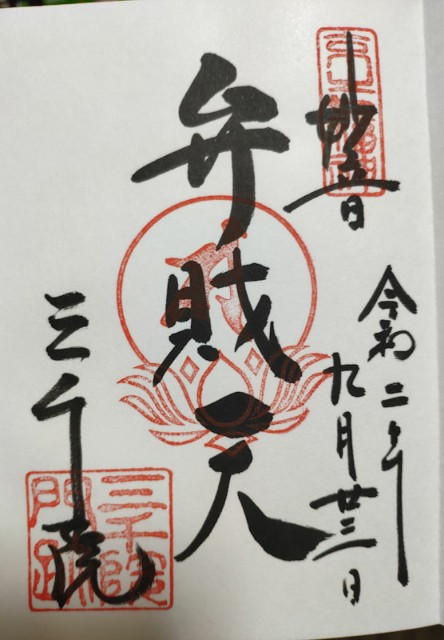 妙音
令和二年
九月廿三日
弁財天
三千院
三千院
門跡